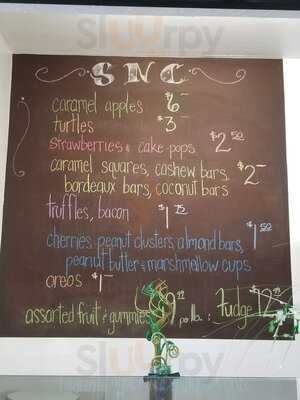 Sluurpy
SNC
caramel apples $6-
turtles $3-
strawberries & cake pops $2 50
caramel squares, cashew bars, $2-
bordeaux bars, coconut bars
truffles, bacon $1 75
cherries peanut clusters, almond bars, $1 50
peanut butter & marshmallow cups
oreos $1-
assorted fruit & gummies per lb. : fudge
Sluurpy